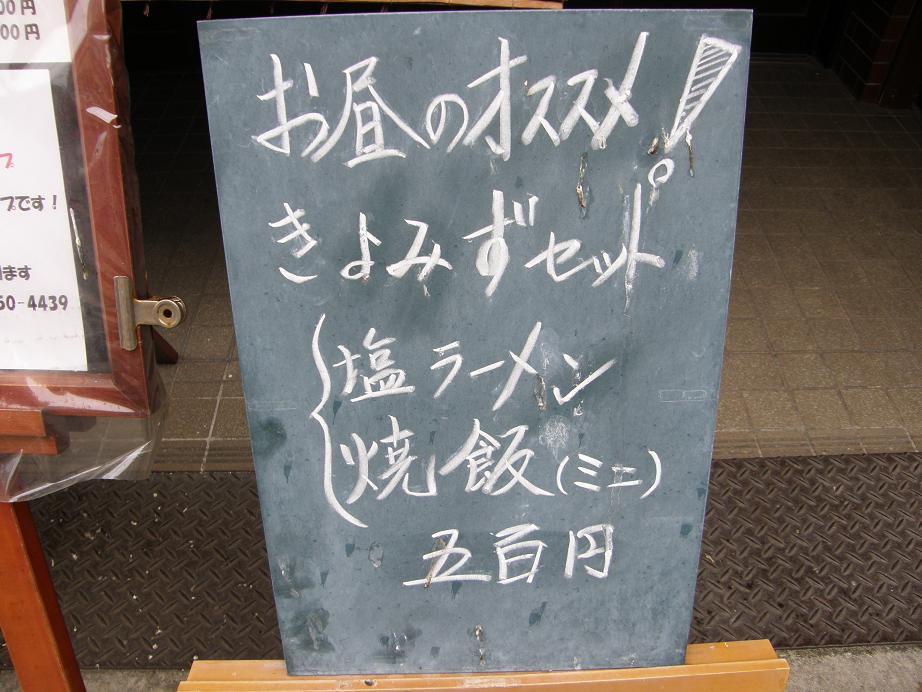 お昼のオススメ!
きよみずセット
塩ラーメン
焼飯(ミニ)
五百円
00円
00円
プ
プです!
ます
60-4439